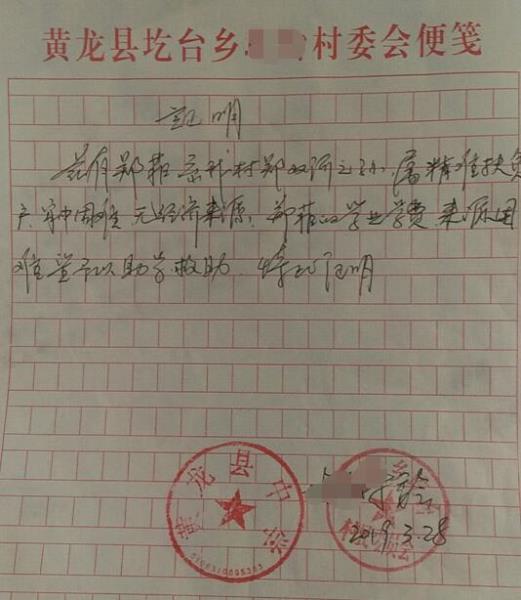 黄龙县圪台乡 村委会便笺
证明
兹有郑菲系我村郑双所之孙,属精准扶贫
户,家中困难,无经济来源,郑菲的学业学费来源困
难,望予以助学救助,特此证明
村委会
2019.3.28
黄龙县中学